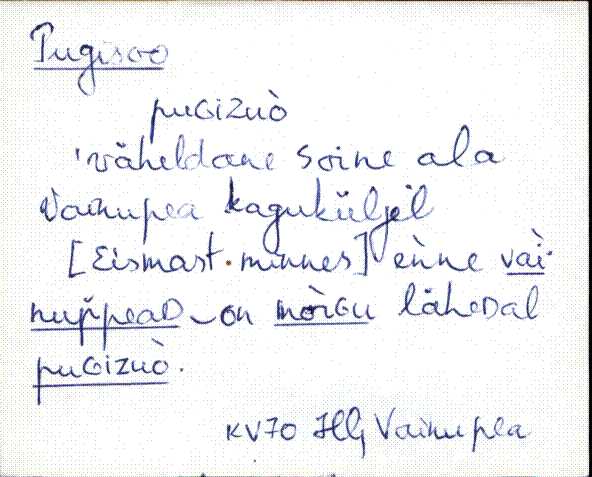 Pugisoo
puGizuò
'väheldane soine ala
Vainupea kaguküljel
[Eismast minnes] eǹne vaì-
nup̆peaD on nòrGu läheDal
puGizuò.
KV70 Vainupea